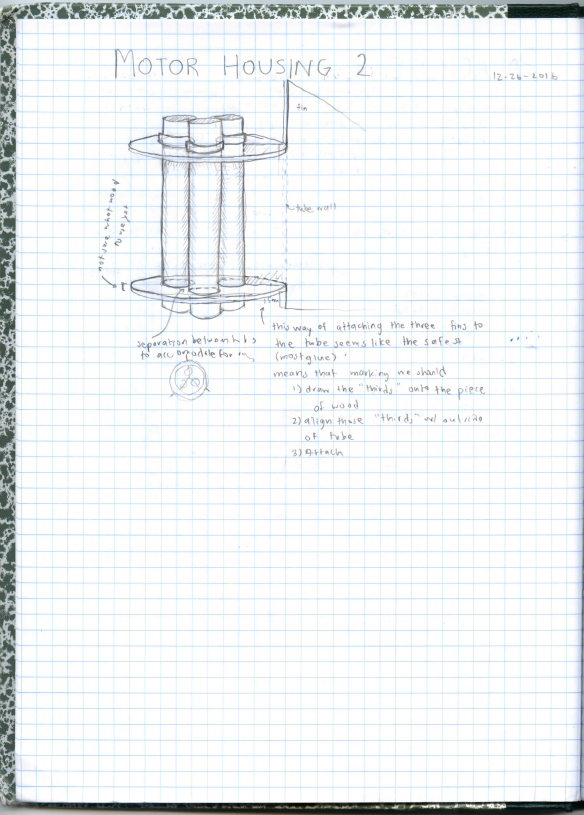 MOTOR HOUSING 2
12-26-2016
fin
tube wall
not sure what wood
to use yet
fin
separation between
to
this way of attaching the three fins to
the tube seems like the safest
(most glue).
means that marking we should
1) draw the "thirds" onto the piece
of wood
2) align those "thirds" w/ outside
of tube
3) Attach